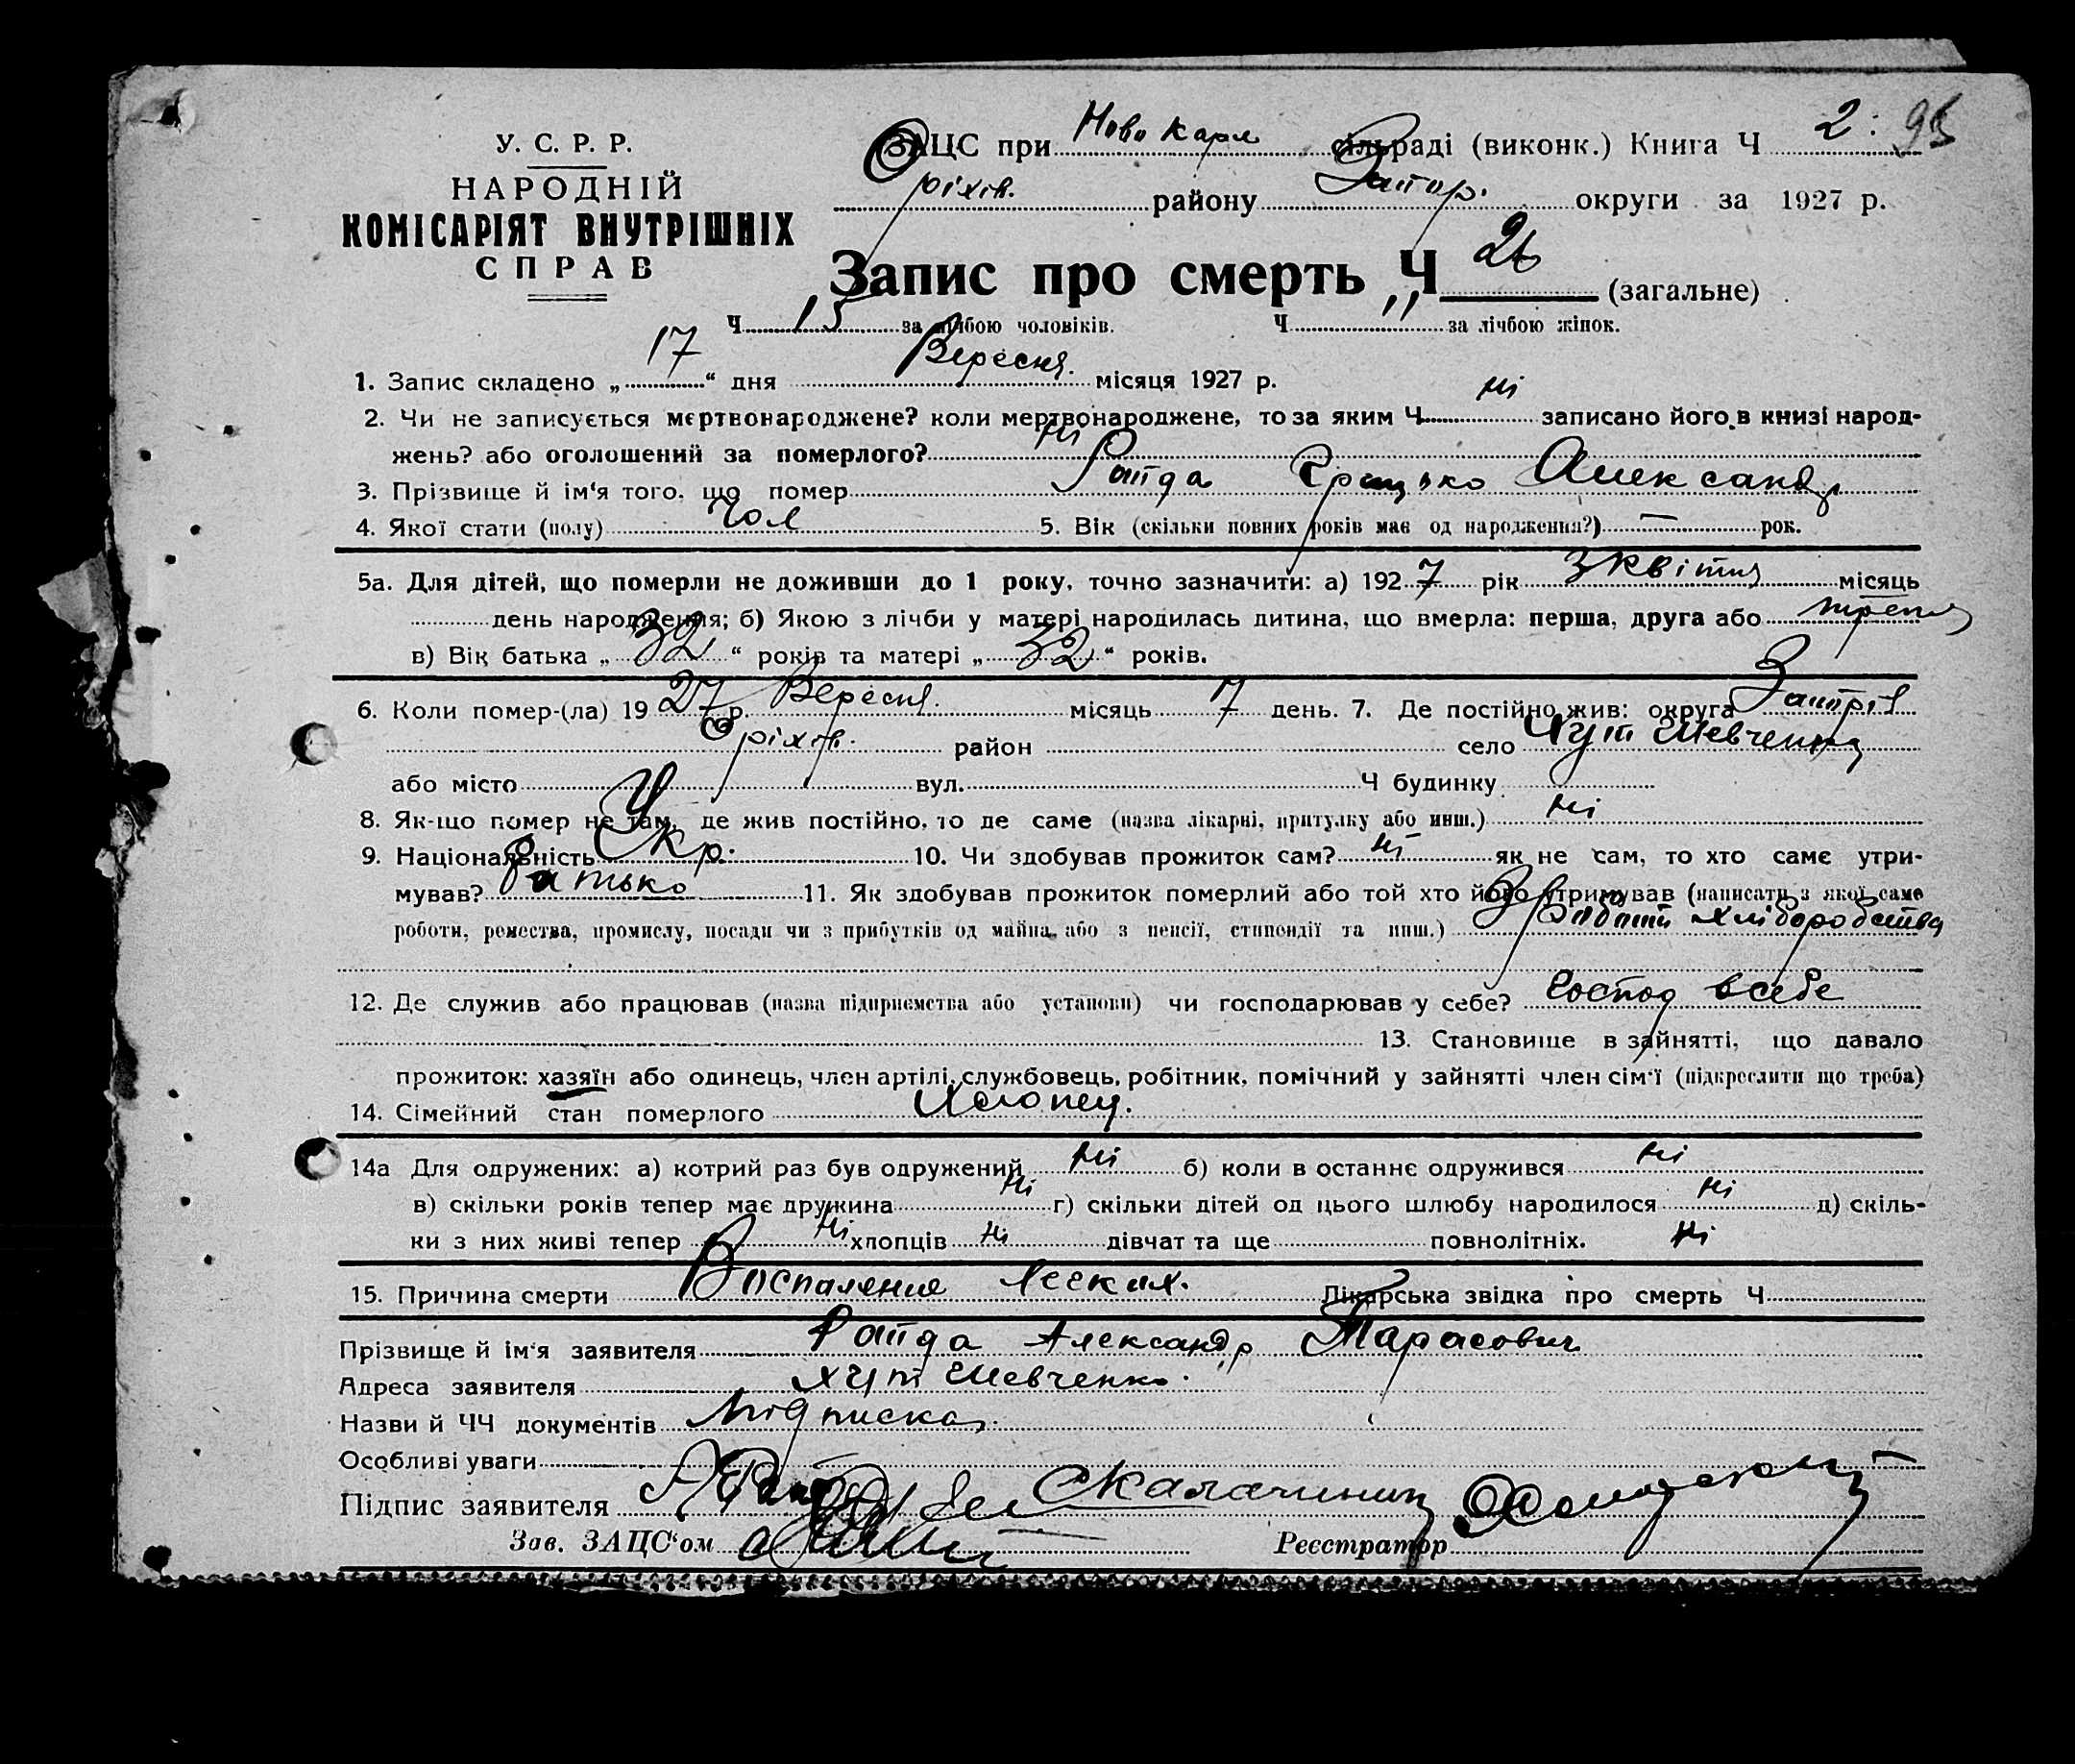 У. С. Р. Р.
НАРОДНІЙ
КОМІСАРІЯТ ВНУТРІШНІХ
СПРАВ
ЗАЦС при Ново Карл сільраді (виконк.) Книга Ч 2: 95
Оріхів. району Запор. округи за 1927 р.
Запис про смерть Ч 26 (загальне)
Ч 15 за лічбою чоловіків. Ч " за лічбою жінок.
1. Запис складено „17“ дня Вересня. місяця 1927 р.
2. Чи не записується мертвонароджене? коли мертвонароджене, то за яким Ч ні записано його в книзі народ-
жень? або оголошений за померлого? ні
3. Прізвище й ім‘я того, що помер Грицько Александр
4. Якої стати (полу) Чол 5. Вік (скільки повних років має од народження?) — рок.
5а. Для дітей, що померли не доживши до 1 року, точно зазначити: а) 1927 рік 3 квітня місяць
день народження; б) Якою з лічби у матері народилась дитина, що вмерла: перша, друга або третя
в) Вік батька „32“ років та матері „32“ років.
6. Коли помер-(ла) 1927 р. Вересня. місяць 17 день. 7. Де постійно жив: округа
Оріхів. район село Хут Шевченко
або місто вул. Ч будинку
8. Як-що помер не там, де жив постійно, то де саме (назва лікарні, притулку або инш.) ні
9. Національність Укр. 10. Чи здобував прожиток сам? ні як не сам, то хто саме утри-
мував? Батько 11. Як здобував прожиток померлий або той хто його утримував (написати з якої саме
роботи, ремества, промислу, посади чи з прибутків од майна, або з пенсії, стипендії та инш.) З роботи хліборобства
12. Де служив або працював (назва підприємства або установи) чи господарював у себе? Господ в себе
13. Становище в зайнятті, що давало
прожиток: хазяїн або одинець, член артілі, службовець, робітник, помічний у зайнятті член сім‘ї (підкреслити що треба)
14. Сімейний стан померлого Хлопец.
14а Для одружених: а) котрий раз був одружений ні б) коли в останнє одружився ні
в) скільки років тепер має дружина ні г) скільки дітей од цього шлюбу народилося ні д) скіль-
ки з них живі тепер ні хлопців ні дівчат та ще повнолітніх. ні
15. Причина смерти Воспаление легких. Лікарська звідка про смерть Ч
Прізвище й ім‘я заявителя Александр Тарасович
Адреса заявителя хут Шевченко.
Назви й ЧЧ документів підписка.
Особливі уваги
Підпис заявителя
Зав. ЗАЦС‘ом Реєстратор